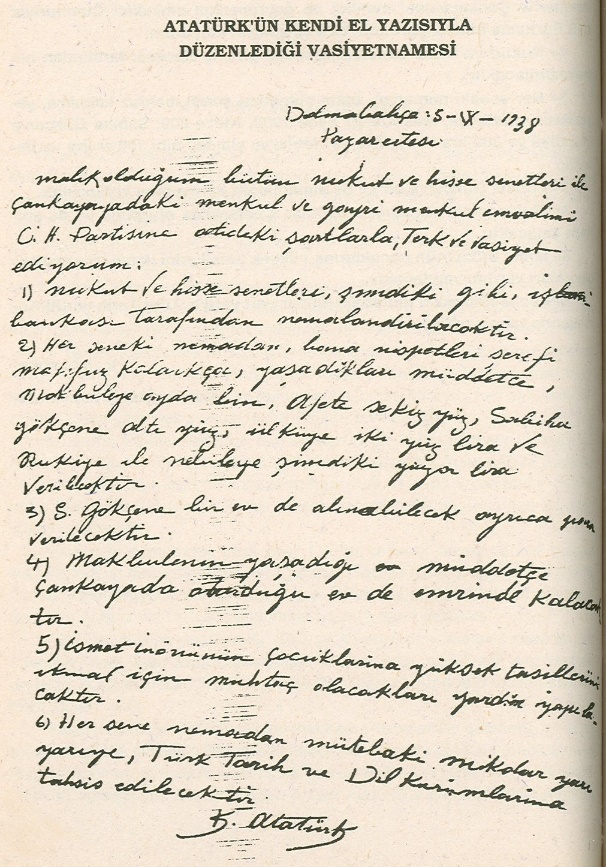 ATATÜRK'ÜN KENDİ EL YAZISIYLA
DÜZENLEDİĞİ VASİYETNAMESİ
Dolmabahçe: 5-IX-1938
Pazarertesi
malik olduğum bütün nukut ve hisse senetleri ile
Çankayadaki menkul ve gayri menkul emvalimi
C. H. Partisine atideki şartlarla, Terk ve Vasiyet
ediyorum:
1) nukut ve hisse senetleri, şimdiki gibi, iş
bankası tarafından nemalandırılacaktır.
2) Her seneki nemadan, bana nispetleri şerefi
mahfuz kaldıkça, yaşadıkları müddetçe,
Makbuleye ayda bin, Afete sekiz yüz, Sabiha
gökçene altı yüz, ülküye iki yüz lira ve
Rukiye ile nebileye şimdiki yüzer lira
verilecektir.
3) S. Gökçene bir ev de alınabilecek ayrıca para
verilecektir.
4) Makbulenin yaşadığı müddetçe
Çankayada oturduğu ev de emrinde kalacak
tır.
5) ismet inönünün çocuklarına yüksek tahsillerini
ikmal için muhtaç olacakları yardım yapıla-
caktır.
6) Her sene nemadan mütebaki miktar yarı
yarıye, Türk Tarih ve Dil Kurumlarına
tahsis edilecektir.
K. Atatürk